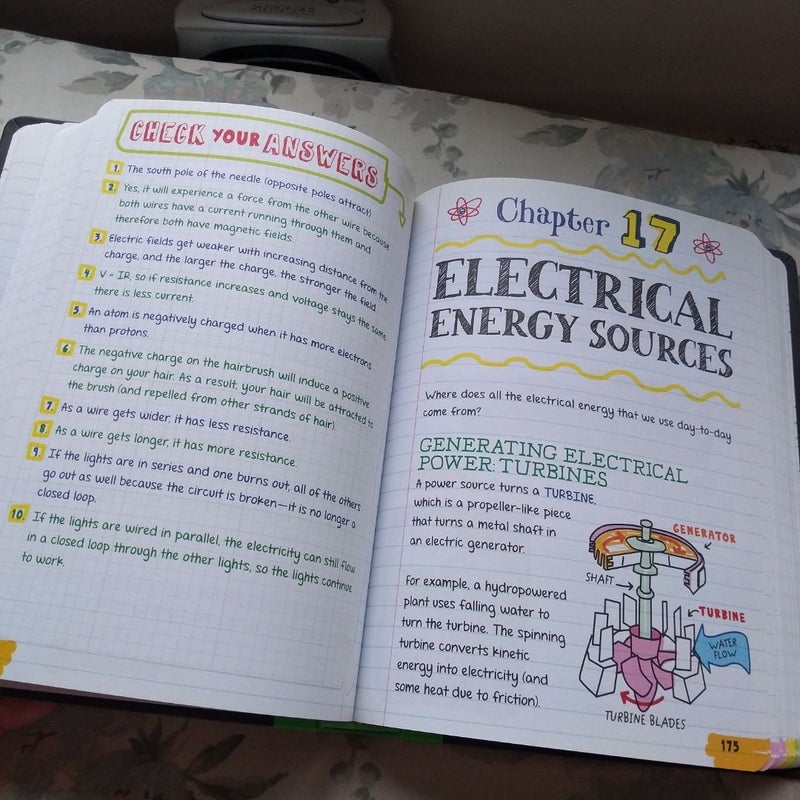 SNOOZE
CHECK YOUR ANSWERS
1. The south pole of the needle (opposite poles attract)
2. Yes, it will experience a force from the other wire because
both wires have a current running through them and
therefore both have magnetic fields.
3. Electric fields get weaker with increasing distance from the
charge, and the larger the charge, the stronger the field.
4. V = IR, so if resistance increases and voltage stays the same,
there is less current.
5. An atom is negatively charged when it has more electrons
than protons.
6. The negative charge on the hairbrush will induce a positive
charge on your hair. As a result, your hair will be attracted to
the brush (and repelled from other strands of hair).
7. As a wire gets wider, it has less resistance.
8. As a wire gets longer, it has more resistance.
9. If the lights are in series and one burns out, all of the others
go out as well because the circuit is broken—it is no longer a
closed loop.
10. If the lights are wired in parallel, the electricity can still flow
in a closed loop through the other lights, so the lights continue
to work.
Chapter 17
ELECTRICAL
ENERGY SOURCES
Where does all the electrical energy that we use day-to-day
come from?
GENERATING ELECTRICAL
POWER: TURBINES
A power source turns a TURBINE,
which is a propeller-like piece
that turns a metal shaft in
an electric generator.
For example, a hydropowered
plant uses falling water to
turn the turbine. The spinning
turbine converts kinetic
energy into electricity (and
some heat due to friction).
GENERATOR
SHAFT
TURBINE
WATER
FLOW
TURBINE BLADES
175